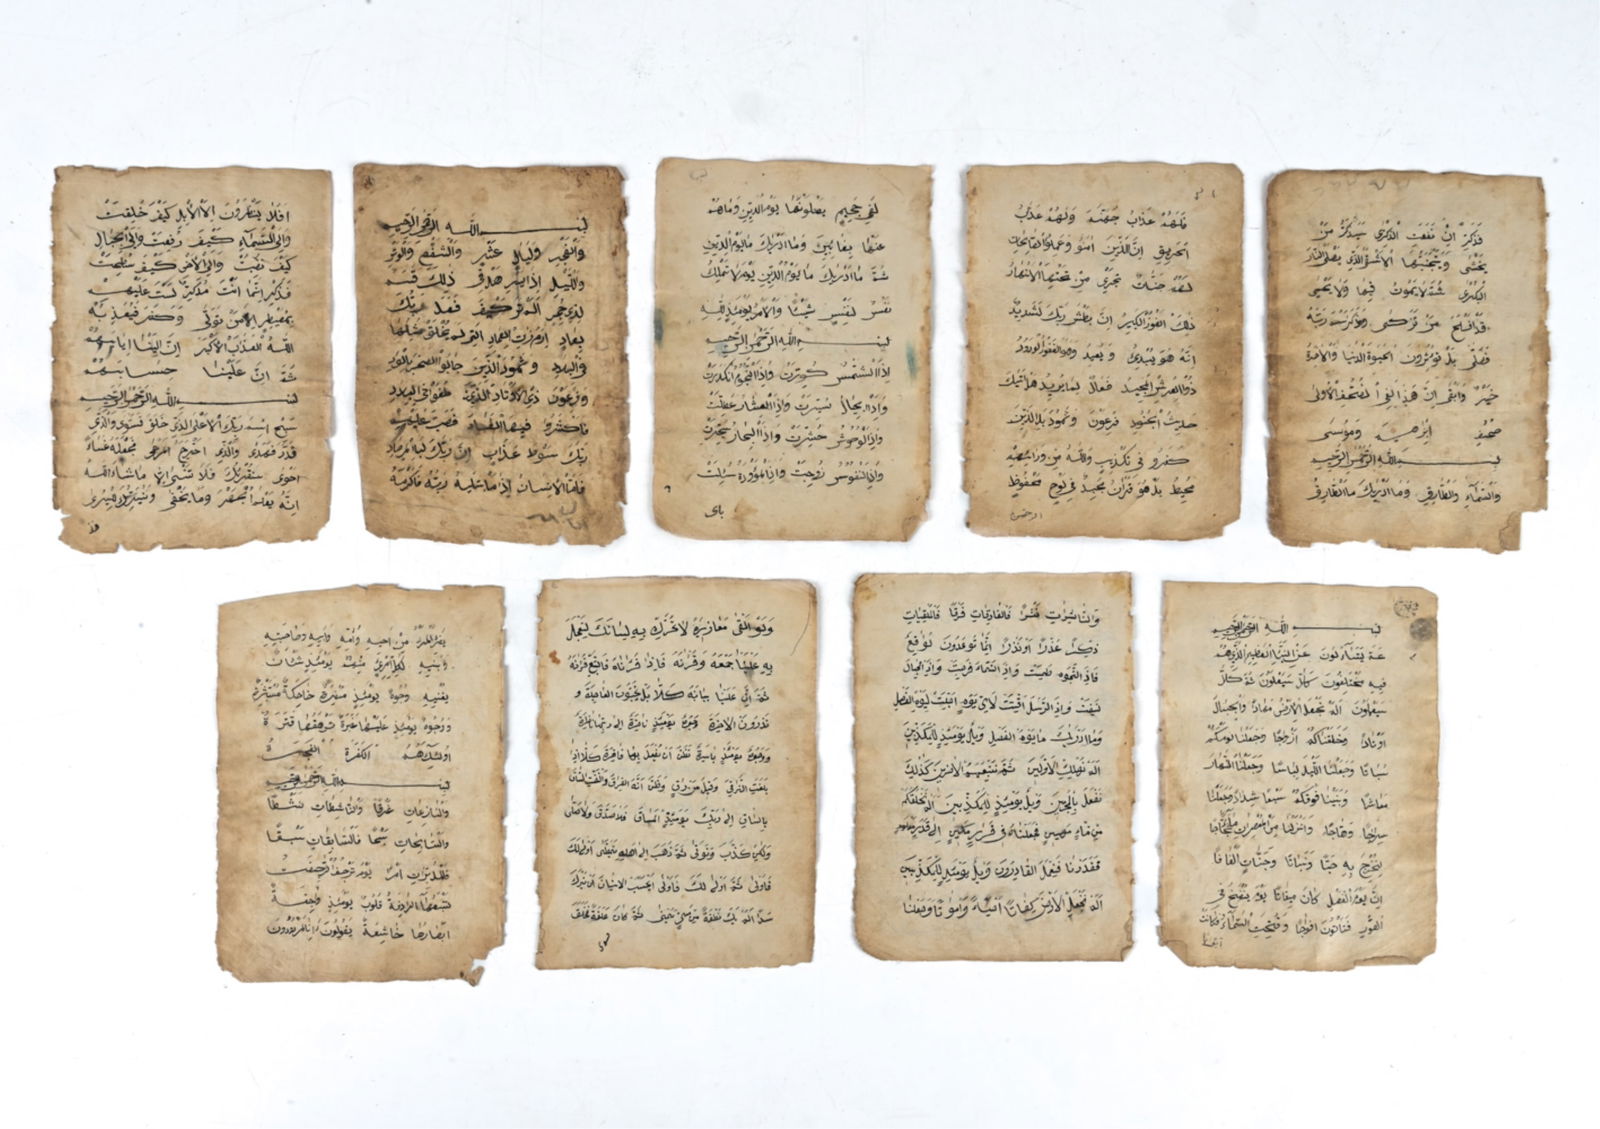 فذكر ان نفعت الذكرى سيذكر من
يخشى ويتجنبها الاشقى الذى يصلى النار
الكبرى ثم لا يموت فيها ولا يحيى
قد افلح من تزكى وذكر اسم ربه
فصلى بل تؤثرون الحيوة الدنيا والاخرة
خير وابقى ان هذا لفى الصحف الاولى
صحف ابرهيم وموسى
بسم الله الرحمن الرحيم
والسماء والطارق وما ادريك ما الطارق
فلهم عذاب جهنم ولهم عذاب
الحريق ان الذين امنوا وعملوا الصالحات
لهم جنات تجرى من تحتها الانهار
ذلك الفوز الكبير ان بطش ربك لشديد
انه هو يبدئ ويعيد وهو الغفور الودود
ذو العرش المجيد فعال لما يريد هل اتيك
حديث الجنود فرعون وثمود بل الذين
كفروا فى تكذيب والله من ورائهم
محيط بل هو قران مجيد فى لوح محفوظ
لفى جحيم يصلونها يوم الدين وما هم
عنها بغائبين وما ادريك ما يوم الدين
ثم ما ادريك ما يوم الدين يوم لا تملك
نفس لنفس شيئا والامر يومئذ لله
بسم الله الرحمن الرحيم
اذا الشمس كورت واذا النجوم انكدرت
واذا الجبال سيرت واذا العشار عطلت
واذا الوحوش حشرت واذا البحار سجرت
واذا النفوس زوجت واذا الموؤدة سئلت
باى
بسم الله الرحمن الرحيم
والفجر وليال عشر والشفع والوتر
والليل اذا يسر هل فى ذلك قسم
لذى حجر الم تر كيف فعل ربك
بعاد ارم ذات العماد التى لم يخلق مثلها
فى البلاد وثمود الذين جابوا الصخر بالواد
وفرعون ذى الاوتاد الذين طغوا فى البلاد
فاكثروا فيها الفساد فصب عليهم
ربك سوط عذاب ان ربك لبالمرصاد
فاما الانسان اذا ما ابتليه ربه فاكرمه
افلا ينظرون الى الابل كيف خلقت
والى السماء كيف رفعت والى الجبال
كيف نصبت والى الارض كيف سطحت
فذكر انما انت مذكر لست عليهم
بمصيطر الا من تولى وكفر فيعذبه
الله العذاب الاكبر ان الينا ايابهم
ثم ان علينا حسابهم
بسم الله الرحمن الرحيم
سبح اسم ربك الاعلى الذى خلق فسوى والذى
قدر فهدى والذى اخرج المرعى فجعله غثاء
احوى سنقرئك فلا تنسى الا ما شاء الله
انه يعلم الجهر وما يخفى ونيسرك لليسرى
بسم الله الرحمن الرحيم
عم يتساءلون عن النبا العظيم الذى هم
فيه مختلفون كلا سيعلمون ثم كلا
سيعلمون الم نجعل الارض مهادا والجبال
اوتادا وخلقناكم ازواجا وجعلنا نومكم
سباتا وجعلنا الليل لباسا وجعلنا النهار
معاشا وبنينا فوقكم سبعا شدادا وجعلنا
سراجا وهاجا وانزلنا من المعصرات ماء ثجاجا
لنخرج به حبا ونباتا وجنات الفافا
ان يوم الفصل كان ميقاتا يوم ينفخ فى
الصور فتاتون افواجا وفتحت السماء فكانت
والناشرات نشرا فالفارقات فرقا فالملقيات
ذكرا عذرا او نذرا انما توعدون لواقع
فاذا النجوم طمست واذا السماء فرجت واذا الجبال
نسفت واذا الرسل اقتت لاى يوم اجلت ليوم الفصل
وما ادريك ما يوم الفصل ويل يومئذ للمكذبين
الم نهلك الاولين ثم نتبعهم الاخرين كذلك
نفعل بالمجرمين ويل يومئذ للمكذبين الم نخلقكم
من ماء مهين فجعلناه فى قرار مكين الى قدر معلوم
فقدرنا فنعم القادرون ويل يومئذ للمكذبين
الم نجعل الارض كفاتا احياء وامواتا وجعلنا
ولو القى معاذيره لا تحرك به لسانك لتعجل
به علينا جمعه وقرانه فاذا قراناه فاتبع قرانه
ثم ان علينا بيانه كلا بل تحبون العاجلة و
تذرون الاخرة وجوه يومئذ ناضرة الى ربها ناظرة
ووجوه يومئذ باسرة تظن ان يفعل بها فاقرة كلا اذا
بلغت التراقى وقيل من راق وظن انه الفراق والتفت الساق
بالساق الى ربك يومئذ المساق فلا صدق ولا صلى
ولكن كذب وتولى ثم ذهب الى اهله يتمطى اولى لك
فاولى ثم اولى لك فاولى ايحسب الانسان ان يترك
سدا الم يك نطفة من منى يمنى ثم كان علقة فخلق
يفر المرء من اخيه وامه وابيه وصاحبته
وبنيه لكل امرئ منهم يومئذ شان
يغنيه وجوه يومئذ مسفرة ضاحكة مستبشرة
ووجوه يومئذ عليها غبرة ترهقها قترة
اولئك هم الكفرة الفجرة
بسم الله الرحمن الرحيم
والنازعات غرقا والناشطات نشطا
والسابحات سبحا فالسابقات سبقا
فالمدبرات امرا يوم ترجف الراجفة
تتبعها الرادفة قلوب يومئذ واجفة
ابصارها خاشعة يقولون ءانا لمردودون